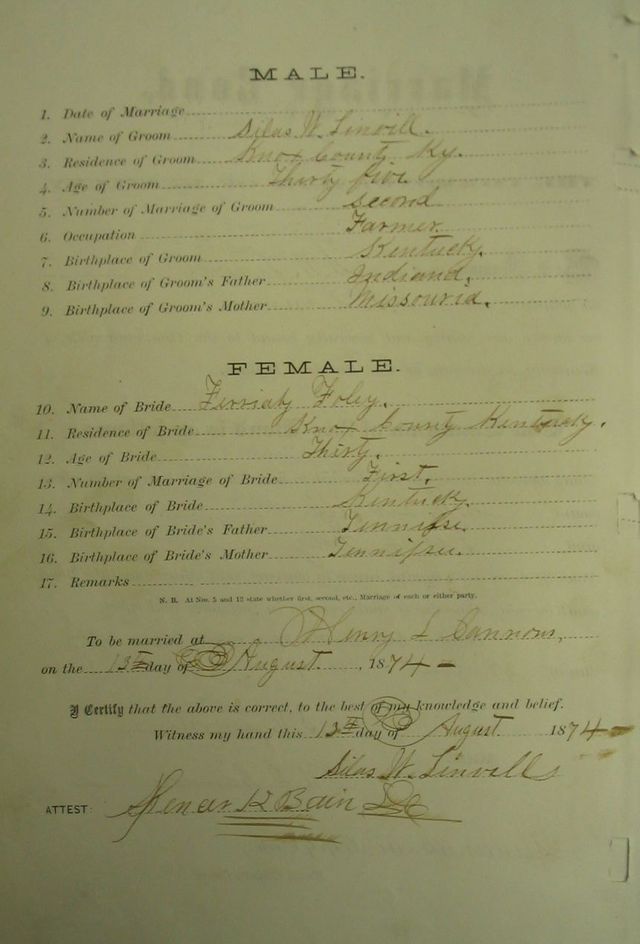 MALE.
1. Date of Marriage
2. Name of Groom Silas W. Linvill.
3. Residence of Groom Knox County. Ky.
4. Age of Groom Thirty five
5. Number of Marriage of Groom second
6. Occupation Farmer.
7. Birthplace of Groom Kentucky.
8. Birthplace of Groom's Father Indiana,
9. Birthplace of Groom's Mother Missouria,
FEMALE.
10. Name of Bride Foley.
11. Residence of Bride Knox County Kentucky.
12. Age of Bride Thirty.
13. Number of Marriage of Bride First.
14. Birthplace of Bride Kentucky.
15. Birthplace of Bride's Father Tennissee
16. Birthplace of Bride's Mother Tennissee.
17. Remarks
N. B. At Nos. 5 and 13 state whether first, second, etc., Marriage of each or either party.
To be married at Henry L Cannons,
on the 13th day of August, 1874
I Certify that the above is correct, to the best of my knowledge and belief.
Witness my hand this 13th day of August 1874
Silas W. Linvill
ATTEST: Bain